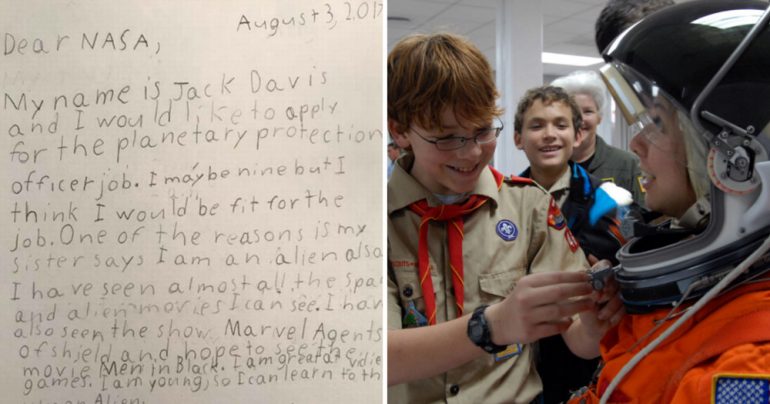 August 3, 2017
Dear NASA,
My name is Jack Davis
and I would like to apply
for the planetary protection
officer job. I may be nine but I
think I would be fit for the
job. One of the reasons is my
sister says I am an alien also
I have seen almost all the spac
and alien movies I can see. I hav
also seen the show Marvel Agents
of shield and hope to see the
movie Men in Black. I am great at vidie
games. I am young, so I can learn to th
Alien.